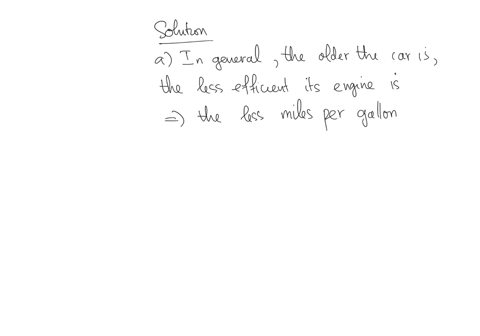 Solution
a) In general, the older the car is,
the less efficient its engine is
⇒ the less miles per gallon